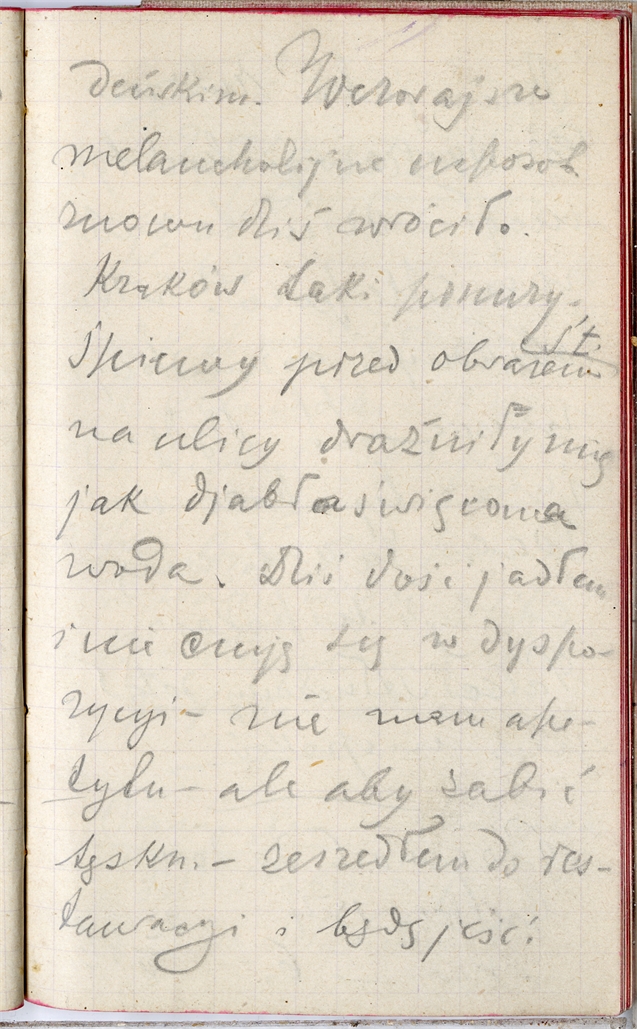 deńskim. Wczorajsze
melancholijne usposob
znowu dziś wróciło.
Kraków taki ponury.
Śpiewy przed obrazem św.
na ulicy drażniły mię
jak djabła święcona
woda. Dziś dość jadłem
i nie czuję się w dyspo-
zycyi – nie mam ape-
tytu – ale aby zabić
tęskn. – zeszedłem do res-
tauracyi i będę jeść.